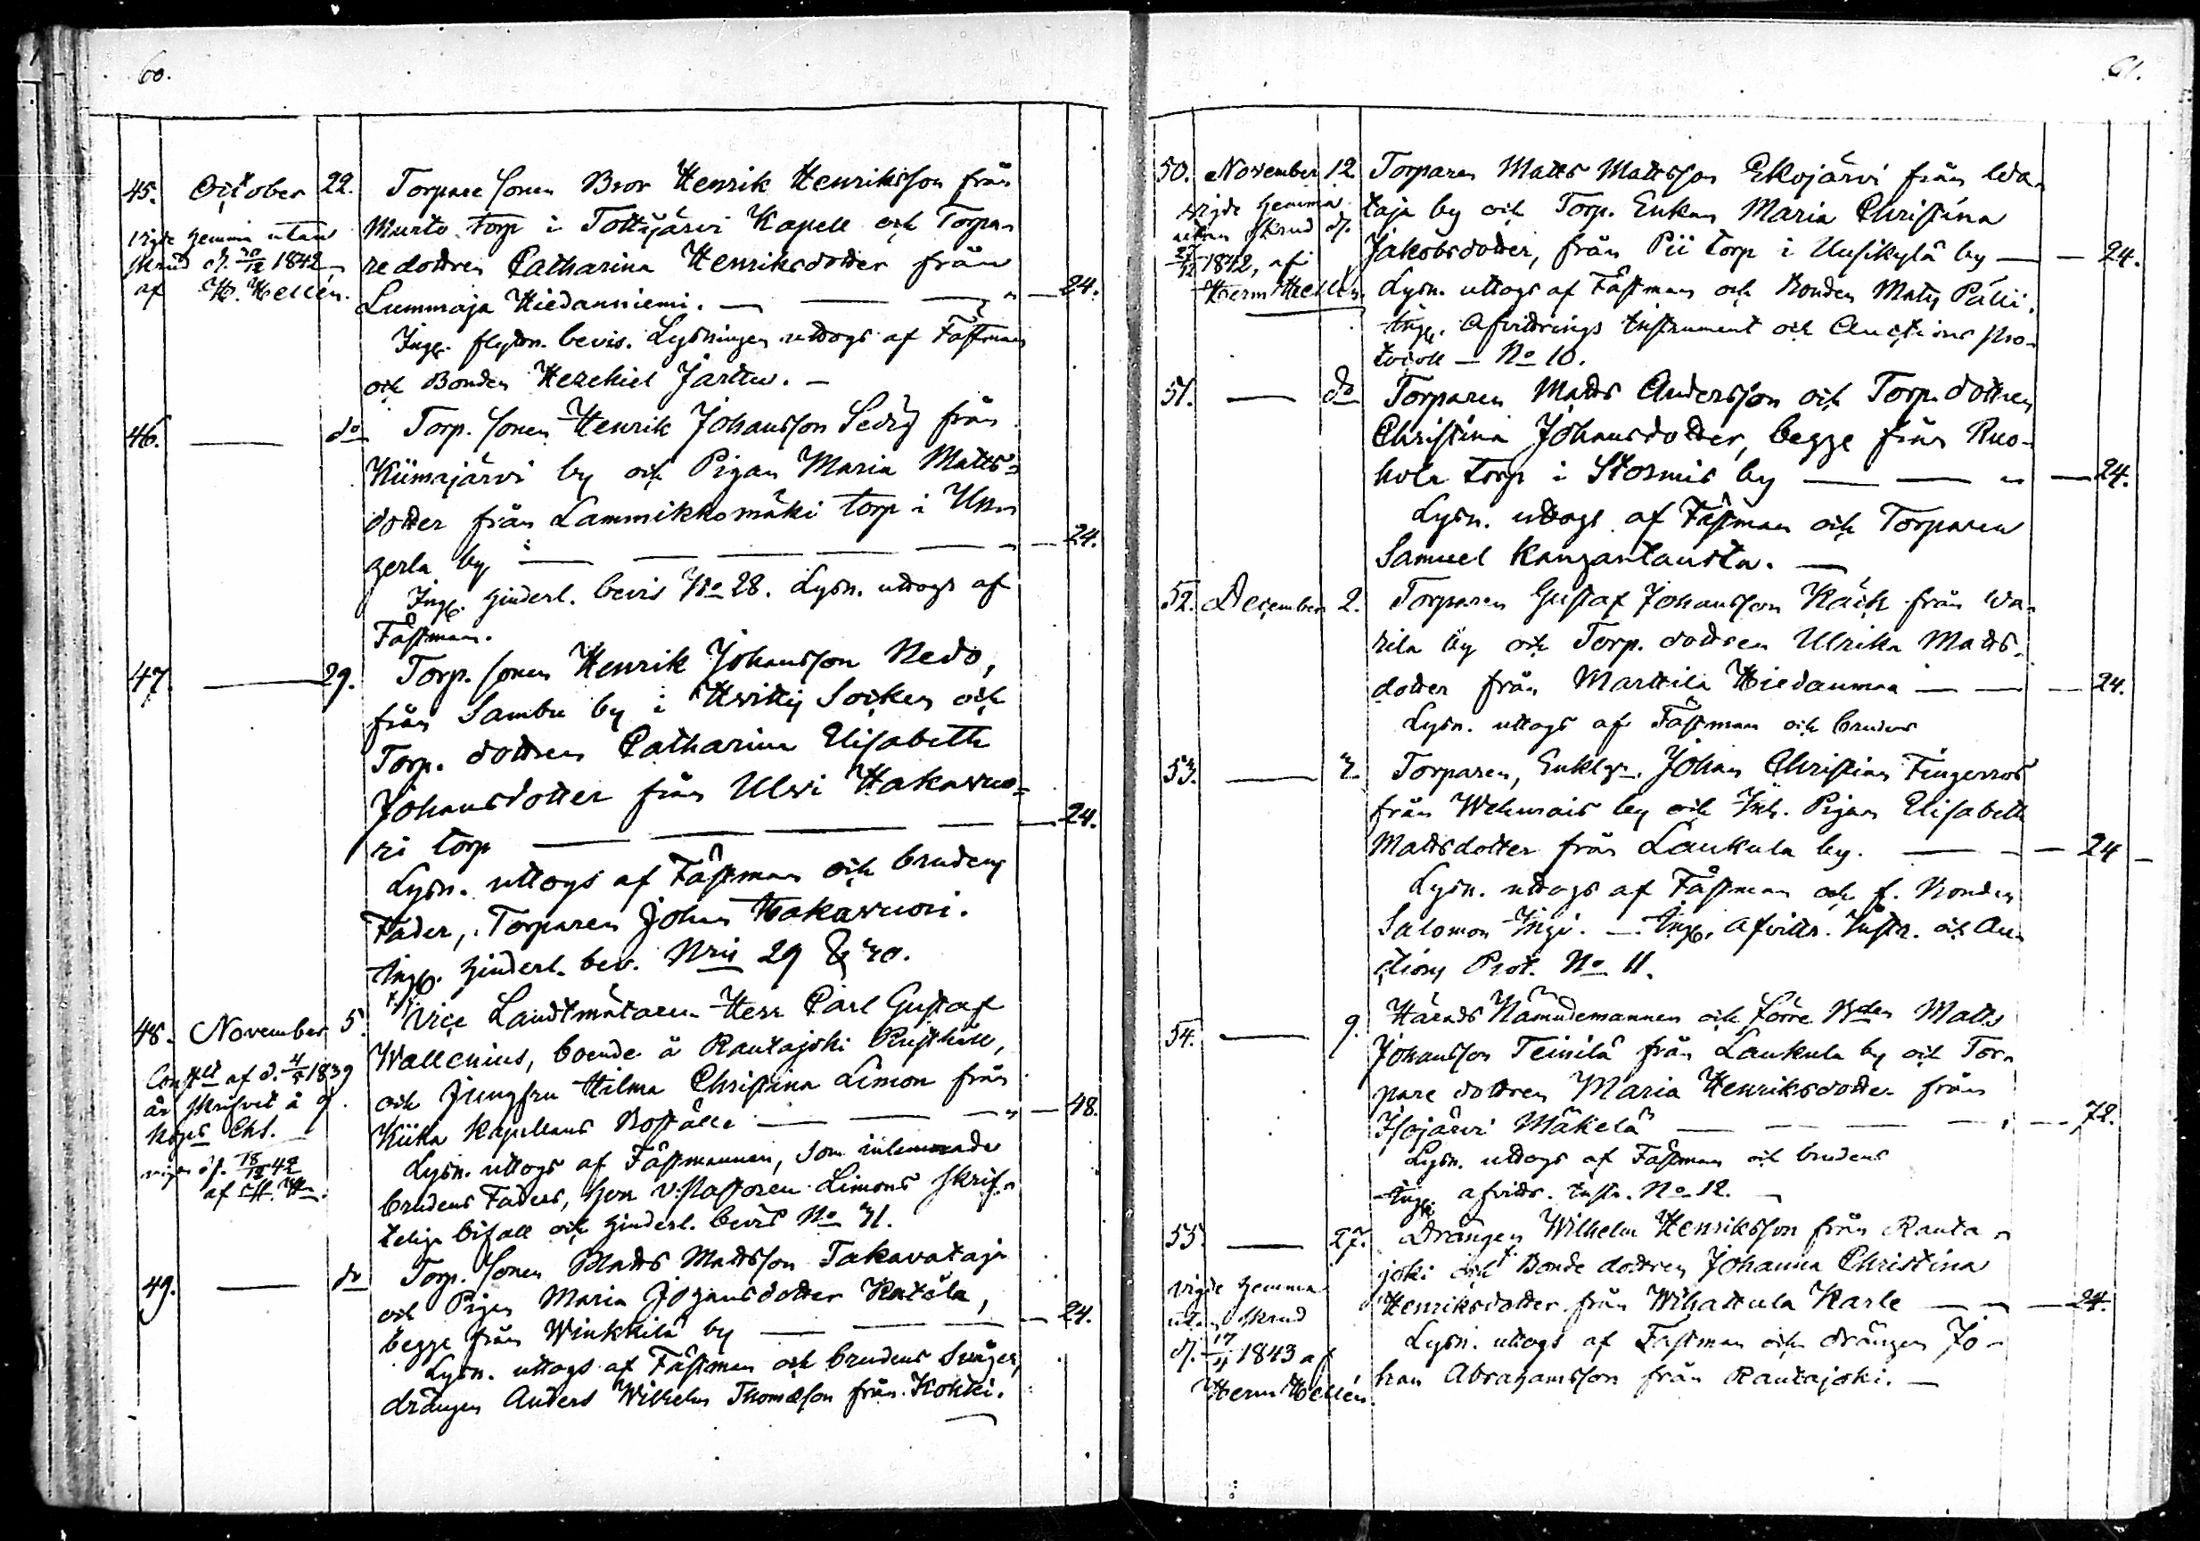 60.
45. October 22. Torpare sonen Bror Henrik Henriksson från
Murto torp i Tottijärvi Kapell och Torpa-
redottren Catharina Henriksdotter från
Lummaja Hiedanniemi. — 24.
Vigde hemma utan
skrud d. 30/12 1842
af H. Hellén.
Ing. flyttn. bevis. Lysningen uttogs af Fästman
och Bonden Hezekiel Jarttu. —
46. — do Torp. sonen Henrik Johansson Sedig från
Kiimajärvi by och Pigan Maria Matts-
dotter från Lammikkomäki torp i Un-
gerla by — 24.
Ing. hinderl. bevis No 28. Lysn. uttogs af
Fästman.
47. — 29. Torp. sonen Henrik Johansson Nedo,
från Sambu by i Hvittis Socken och
Torp. dottren Catharina Elisabeth
Johansdotter från Ulvi Hakavuo-
ri torp — 24.
Lysn. uttogs af Fästman och brudens
Fader, Torparen Johan Hakavuori.
Ing. hinderl. bev. Nris 29 & 30.
48. November 5. Vice Landtmätaren Herr Carl Gustaf
Wallenius, boende å Rautajoki Rusthåll,
och Jungfru Hilma Christina Limon från
Kiika Kapellans Boställe — 48.
af d. 4/5 1839
är skrifvet å
18/12 42
af H. Hn.
Lysn. uttogs af Fästmannen, som inlemnade
brudens Faders, Herr v. Pastoren Limons skrif-
telige bifall och hinderl. bevis No 31.
49. — do Torp. sonen Matts Mattsson Takavataja
och Pigan Maria Johansdotter Ratöla,
begge från Winkkilä by — 24.
Lysn. uttogs af Fästman och brudens Svåger,
drängen Anders Wilhelm Thomasson från Kokki.
61.
50. November 12. Torparen Matts Mattsson Ekojärvi från Wa-
taja by och Torp. Enkan Maria Christina
Jakobsdotter, från Pii torp i Uusikylä by — 24.
Vigde hemma
utan skrud d.
27/12 1842, af
Herm Hellén.
Lysn. uttogs af Fästman och Bonden Matts Pälli.
Ing. Afvittrings Instrument och Auctions Pro-
tocoll — No 10.
51. — do Torparen Matts Andersson och Torp. dottren
Christina Johansdotter, begge från Ruo-
hola torp i Stormis by — 24.
Lysn. uttogs af Fästman och Torparen
Samuel Kangantausta. —
52. December 2. Torparen Gustaf Johansson Käck från Wa-
rila by och Torp. dottren Ulrika Matts-
dotter från Marttila Hiedanmaa — 24.
Lysn. uttogs af Fästman och brudens
53. — 3. Torparen, Enkl. Johan Christian Fingerroos
från Wehmais by och Inh. Pigan Elisabeth
Mattsdotter från Laukula by. — 24
Lysn. uttogs af Fästman och f. Bonden
Salomon Ingi. — Ing. Afvittr. Instr. och Au-
ctions Prot. No 11.
54. — 9. Härads Nämndemannen och förre Bden Matts
Johansson Teinilä från Laukula by och Tor-
pare dottren Maria Henriksdotter från
Isojärvi Mäkelä — 72.
Lysn. uttogs af Fästman och brudens
Ing. afvittr. instr. No 12. —
55. — 27. Drängen Wilhelm Henriksson från Rauta-
joki och Bonde dottren Johanna Christina
Henriksdotter från Wihattula Karle — 24.
Vigde hemma
utan skrud
d. 17/4 1843 af
Herm Hellén.
Lysn. uttogs af Fästman och drängen Jo-
han Abrahamsson från Rautajoki. —